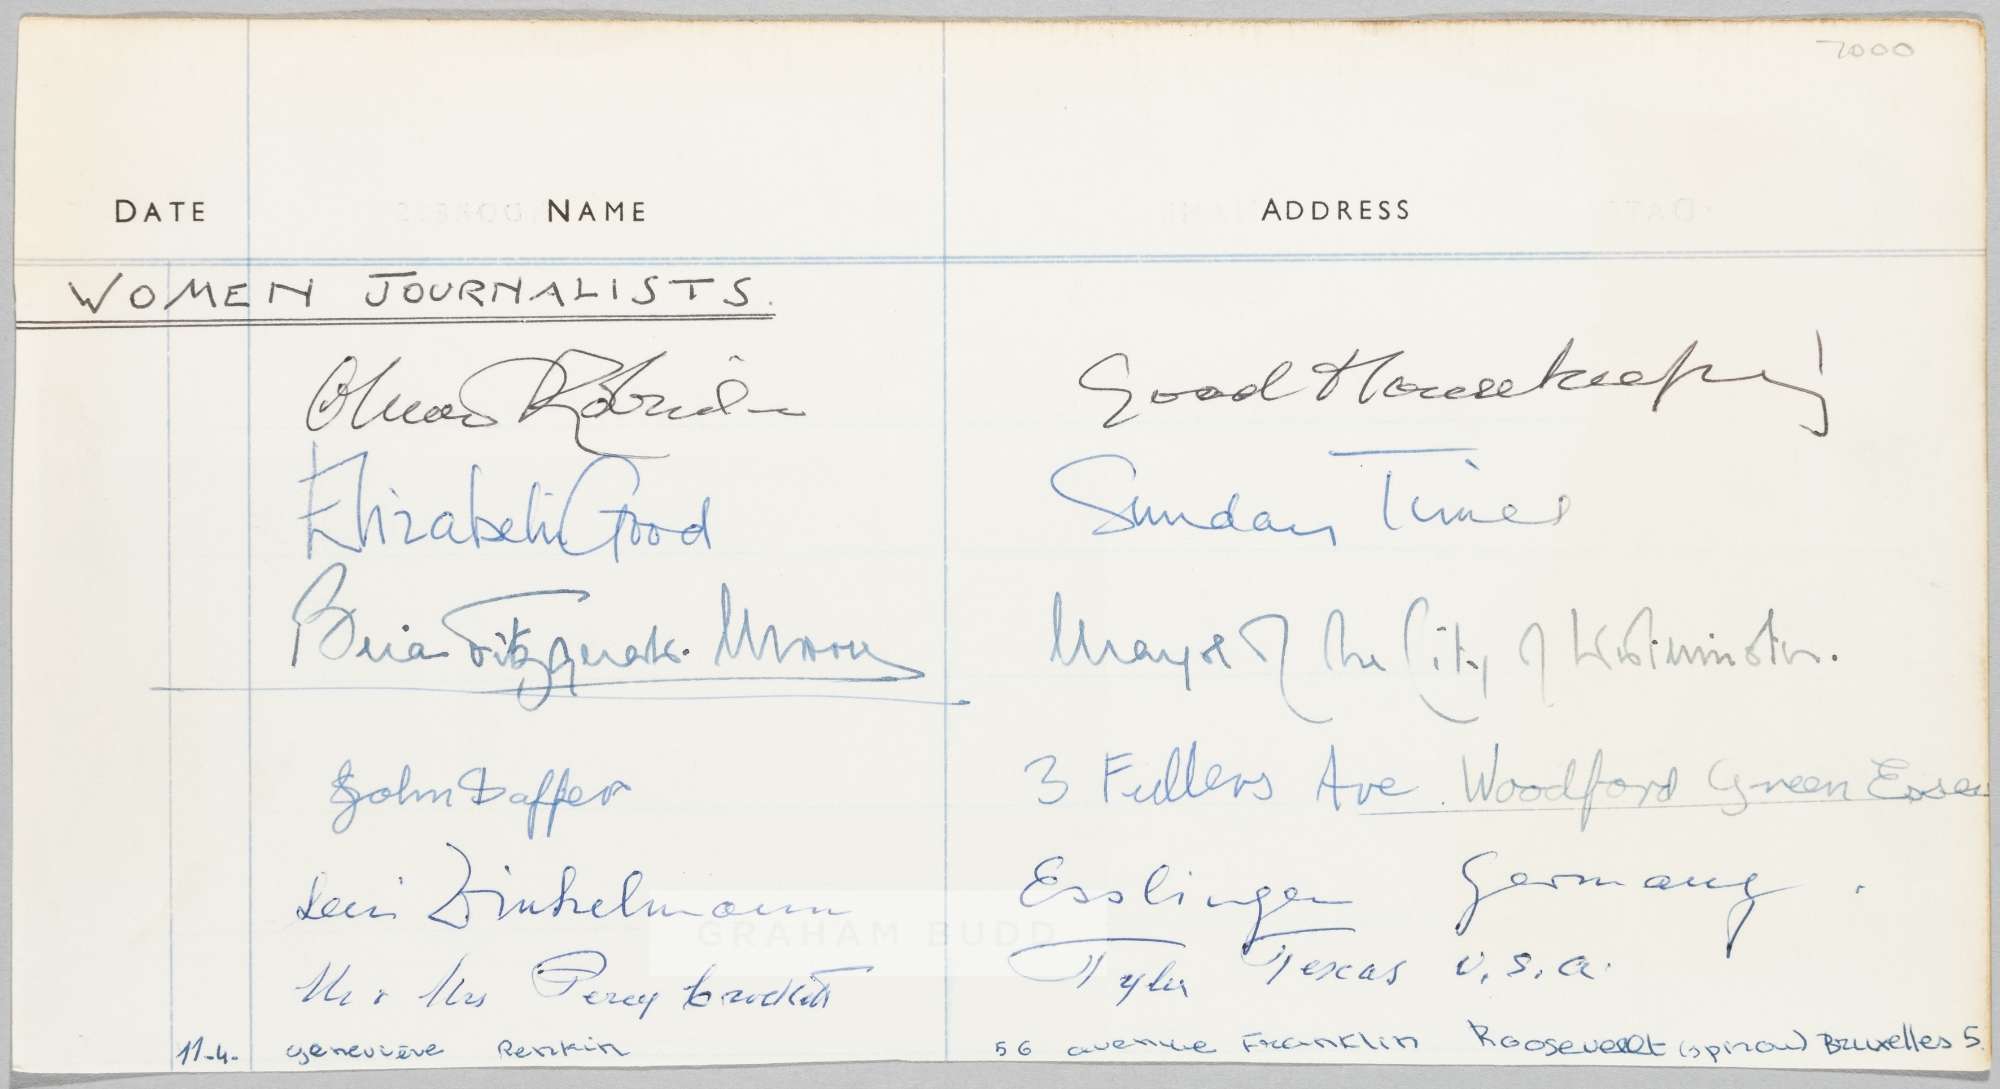 7000
DATE NAME ADDRESS
WOMEN JOURNALISTS.
Robinson Good Housekeeping
Elizabeth Good Sunday Times
Brian Fitzgerald-Moore Mayor of the City of Westminster.
John Daffer 3 Fullers Ave. Woodford Green Essex
Dinkelmann Esslingen Germany.
Mr & Mrs Percy Crockett Tyler Texas U.S.A.
GRAHAM BUDD
11-4. Geneviève Renkin 56 avenue Franklin Roosevelt (spirou) Bruxelles 5.